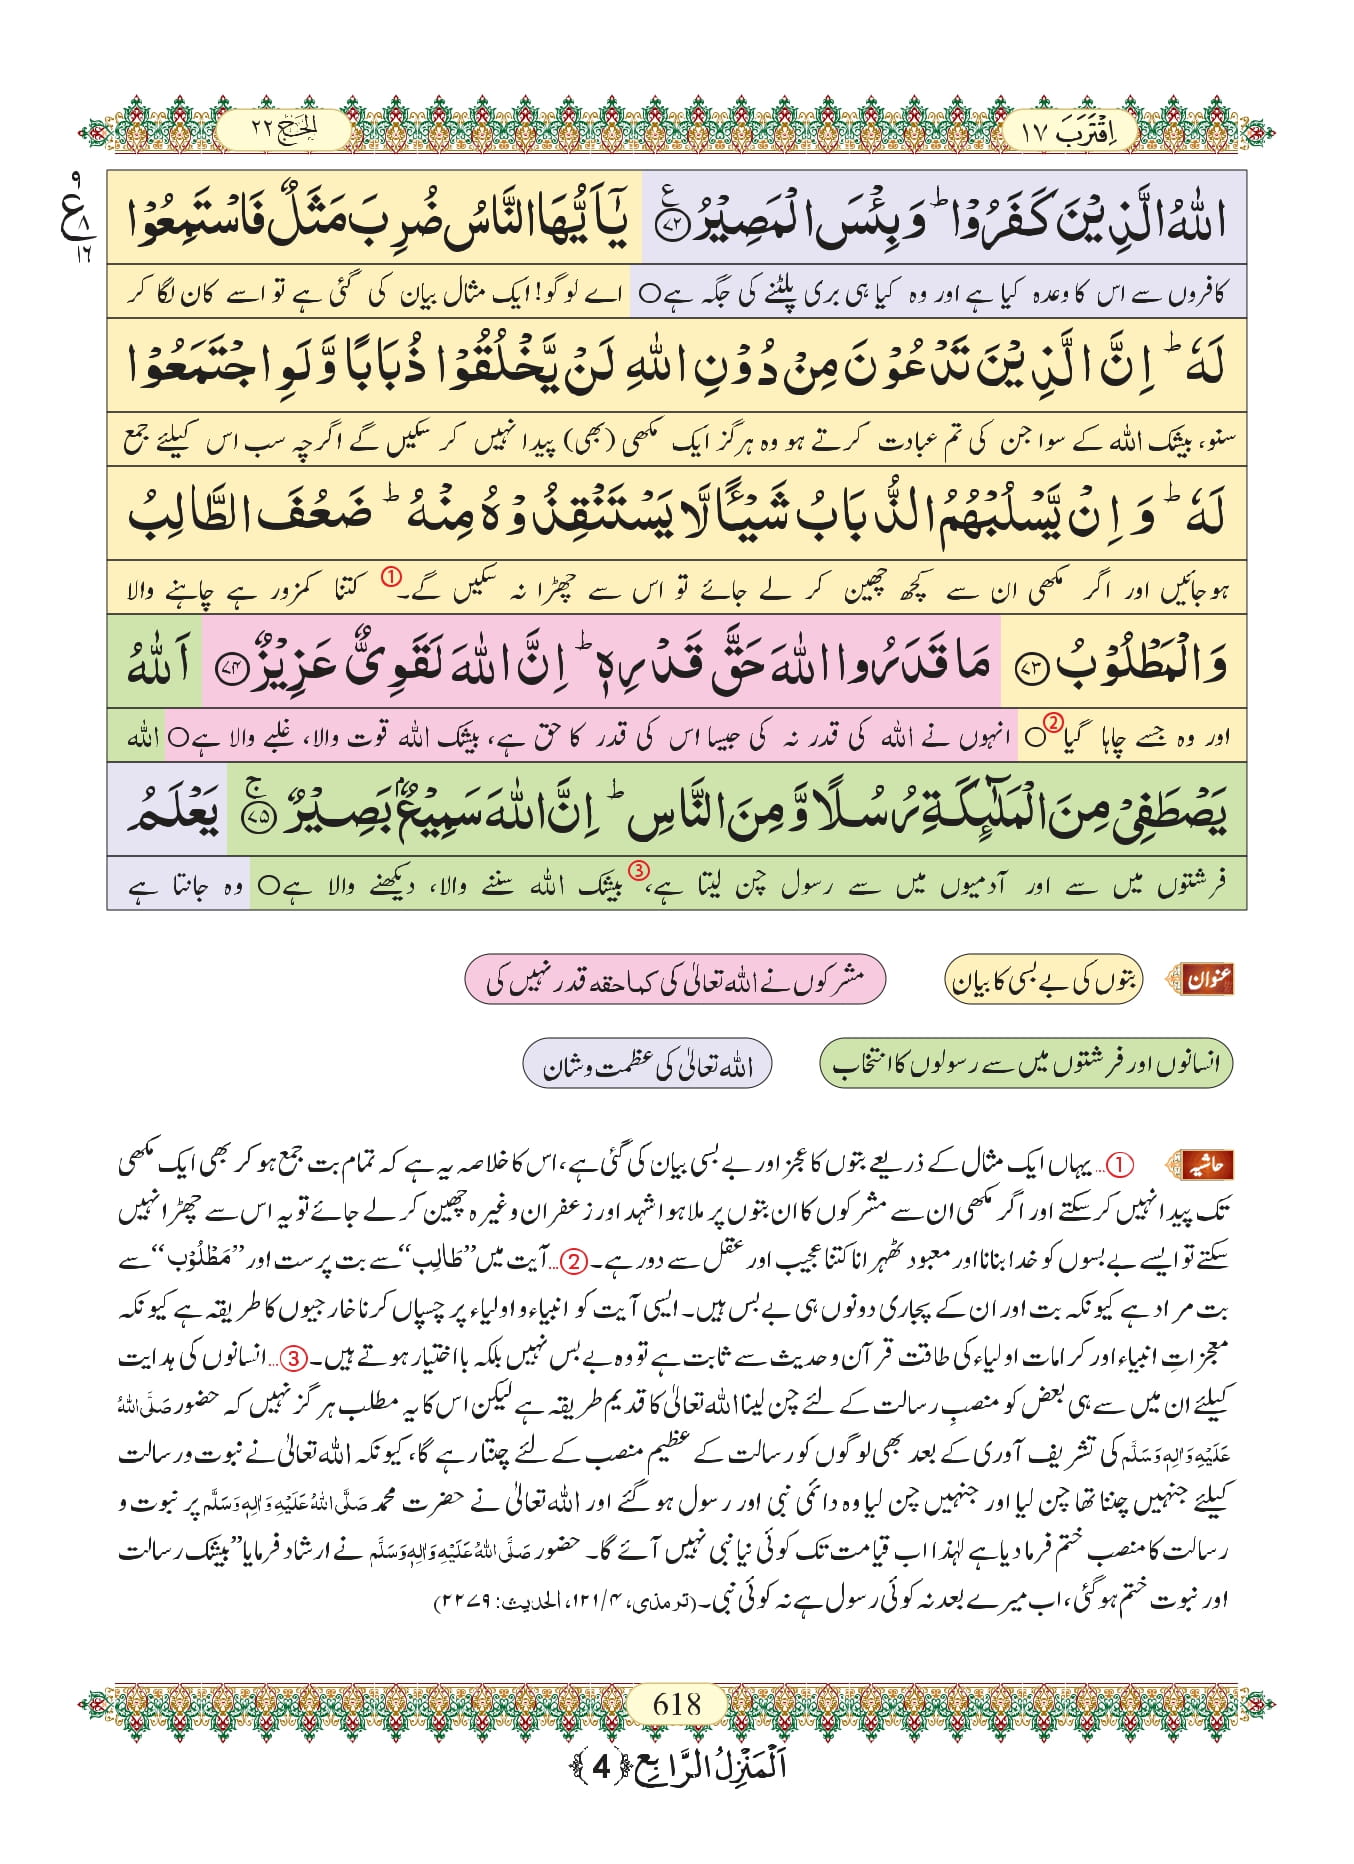 اِقْتَرَبَ ١٧
الحَجّ ٢٢
اللّٰهُ الَّذِیْنَ كَفَرُوْاؕ وَ بِئْسَ الْمَصِیْرُ۠۝۷۲ یٰۤاَیُّهَا النَّاسُ ضُرِبَ مَثَلٌ فَاسْتَمِعُوْا
ع ۹ ۸ ١٦
کافروں سے اس کا وعدہ کیا ہے اور وہ کیا ہی بری پلٹنے کی جگہ ہے○ اے لوگو! ایک مثال بیان کی گئی ہے تو اسے کان لگا کر
لَهٗؕ اِنَّ الَّذِیْنَ تَدْعُوْنَ مِنْ دُوْنِ اللّٰهِ لَنْ یَّخْلُقُوْا ذُبَابًا وَّ لَوِ اجْتَمَعُوْا
سنو، بیشک اللہ کے سوا جن کی تم عبادت کرتے ہو وہ ہرگز ایک مکھی (بھی) پیدا نہیں کر سکیں گے اگرچہ سب اس کیلئے جمع
لَهٗؕ وَ اِنْ یَّسْلُبْهُمُ الذُّبَابُ شَیْــٴًـا لَّا یَسْتَنْقِذُوْهُ مِنْهُؕ ضَعُفَ الطَّالِبُ
ہوجائیں اور اگر مکھی ان سے کچھ چھین کر لے جائے تو اس سے چھڑا نہ سکیں گے۔① کتنا کمزور ہے چاہنے والا
وَ الْمَطْلُوْبُ۝۷۳ مَا قَدَرُوا اللّٰهَ حَقَّ قَدْرِهٖؕ اِنَّ اللّٰهَ لَقَوِیٌّ عَزِیْزٌ۝۷۴ اَللّٰهُ
اور وہ جسے چاہا گیا②○ انہوں نے اللہ کی قدر نہ کی جیسا اس کی قدر کا حق ہے، بیشک اللہ قوت والا، غلبے والا ہے○ اللہ
یَصْطَفِیْ مِنَ الْمَلٰٓىٕكَةِ رُسُلًا وَّ مِنَ النَّاسِؕ اِنَّ اللّٰهَ سَمِیْعٌۢ بَصِیْرٌۚ۝۷۵ یَعْلَمُ
فرشتوں میں سے اور آدمیوں میں سے رسول چن لیتا ہے،③ بیشک اللہ سننے والا، دیکھنے والا ہے○ وہ جانتا ہے
عنوان بتوں کی بے بسی کا بیان مشرکوں نے اللہ تعالیٰ کی کماحقہ قدر نہیں کی
انسانوں اور فرشتوں میں سے رسولوں کا انتخاب اللہ تعالیٰ کی عظمت و شان
حاشیہ ①... یہاں ایک مثال کے ذریعے بتوں کا عجز اور بے بسی بیان کی گئی ہے، اس کا خلاصہ یہ ہے کہ تمام بت جمع ہو کر بھی ایک مکھی
تک پیدا نہیں کرسکتے اور اگر مکھی ان سے مشرکوں کا ان بتوں پر ملا ہوا شہد اور زعفران وغیرہ چھین کر لے جائے تو یہ اس سے چھڑا نہیں
سکتے تو ایسے بے بسوں کو خدا بنانا اور معبود ٹھہرانا کتنا عجیب اور عقل سے دور ہے۔②... آیت میں ”طَالِب“ سے بت پرست اور ”مَطْلُوْب“ سے
بت مراد ہے کیونکہ بت اور ان کے پجاری دونوں ہی بے بس ہیں۔ ایسی آیت کو انبیاء و اولیاء پر چسپاں کرنا خارجیوں کا طریقہ ہے کیونکہ
معجزاتِ انبیاء اور کرامات اولیاء کی طاقت قرآن و حدیث سے ثابت ہے تو وہ بے بس نہیں بلکہ بااختیار ہوتے ہیں۔③... انسانوں کی ہدایت
کیلئے ان میں سے ہی بعض کو منصبِ رسالت کے لئے چن لینا اللہ تعالیٰ کا قدیم طریقہ ہے لیکن اس کا یہ مطلب ہرگز نہیں کہ حضور صَلَّی اللہُ
عَلَیْہِ وَاٰلِہٖ وَسَلَّم کی تشریف آوری کے بعد بھی لوگوں کو رسالت کے عظیم منصب کے لئے چنتا رہے گا، کیونکہ اللہ تعالیٰ نے نبوت و رسالت
کیلئے جنہیں چننا تھا چن لیا اور جنہیں چن لیا وہ دائمی نبی اور رسول ہوگئے اور اللہ تعالیٰ نے حضرت محمد صَلَّی اللہُ عَلَیْہِ وَاٰلِہٖ وَسَلَّم پر نبوت و
رسالت کا منصب ختم فرما دیا ہے لہٰذا اب قیامت تک کوئی نیا نبی نہیں آئے گا۔ حضور صَلَّی اللہُ عَلَیْہِ وَاٰلِہٖ وَسَلَّم نے ارشاد فرمایا ”بیشک رسالت
اور نبوت ختم ہوگئی، اب میرے بعد نہ کوئی رسول ہے نہ کوئی نبی۔ (ترمذی، ۴/۱۲۱، الحدیث: ۲۲۷۹)
618
اَلْمَنْزِلُ الرَّابِع ﴿4﴾